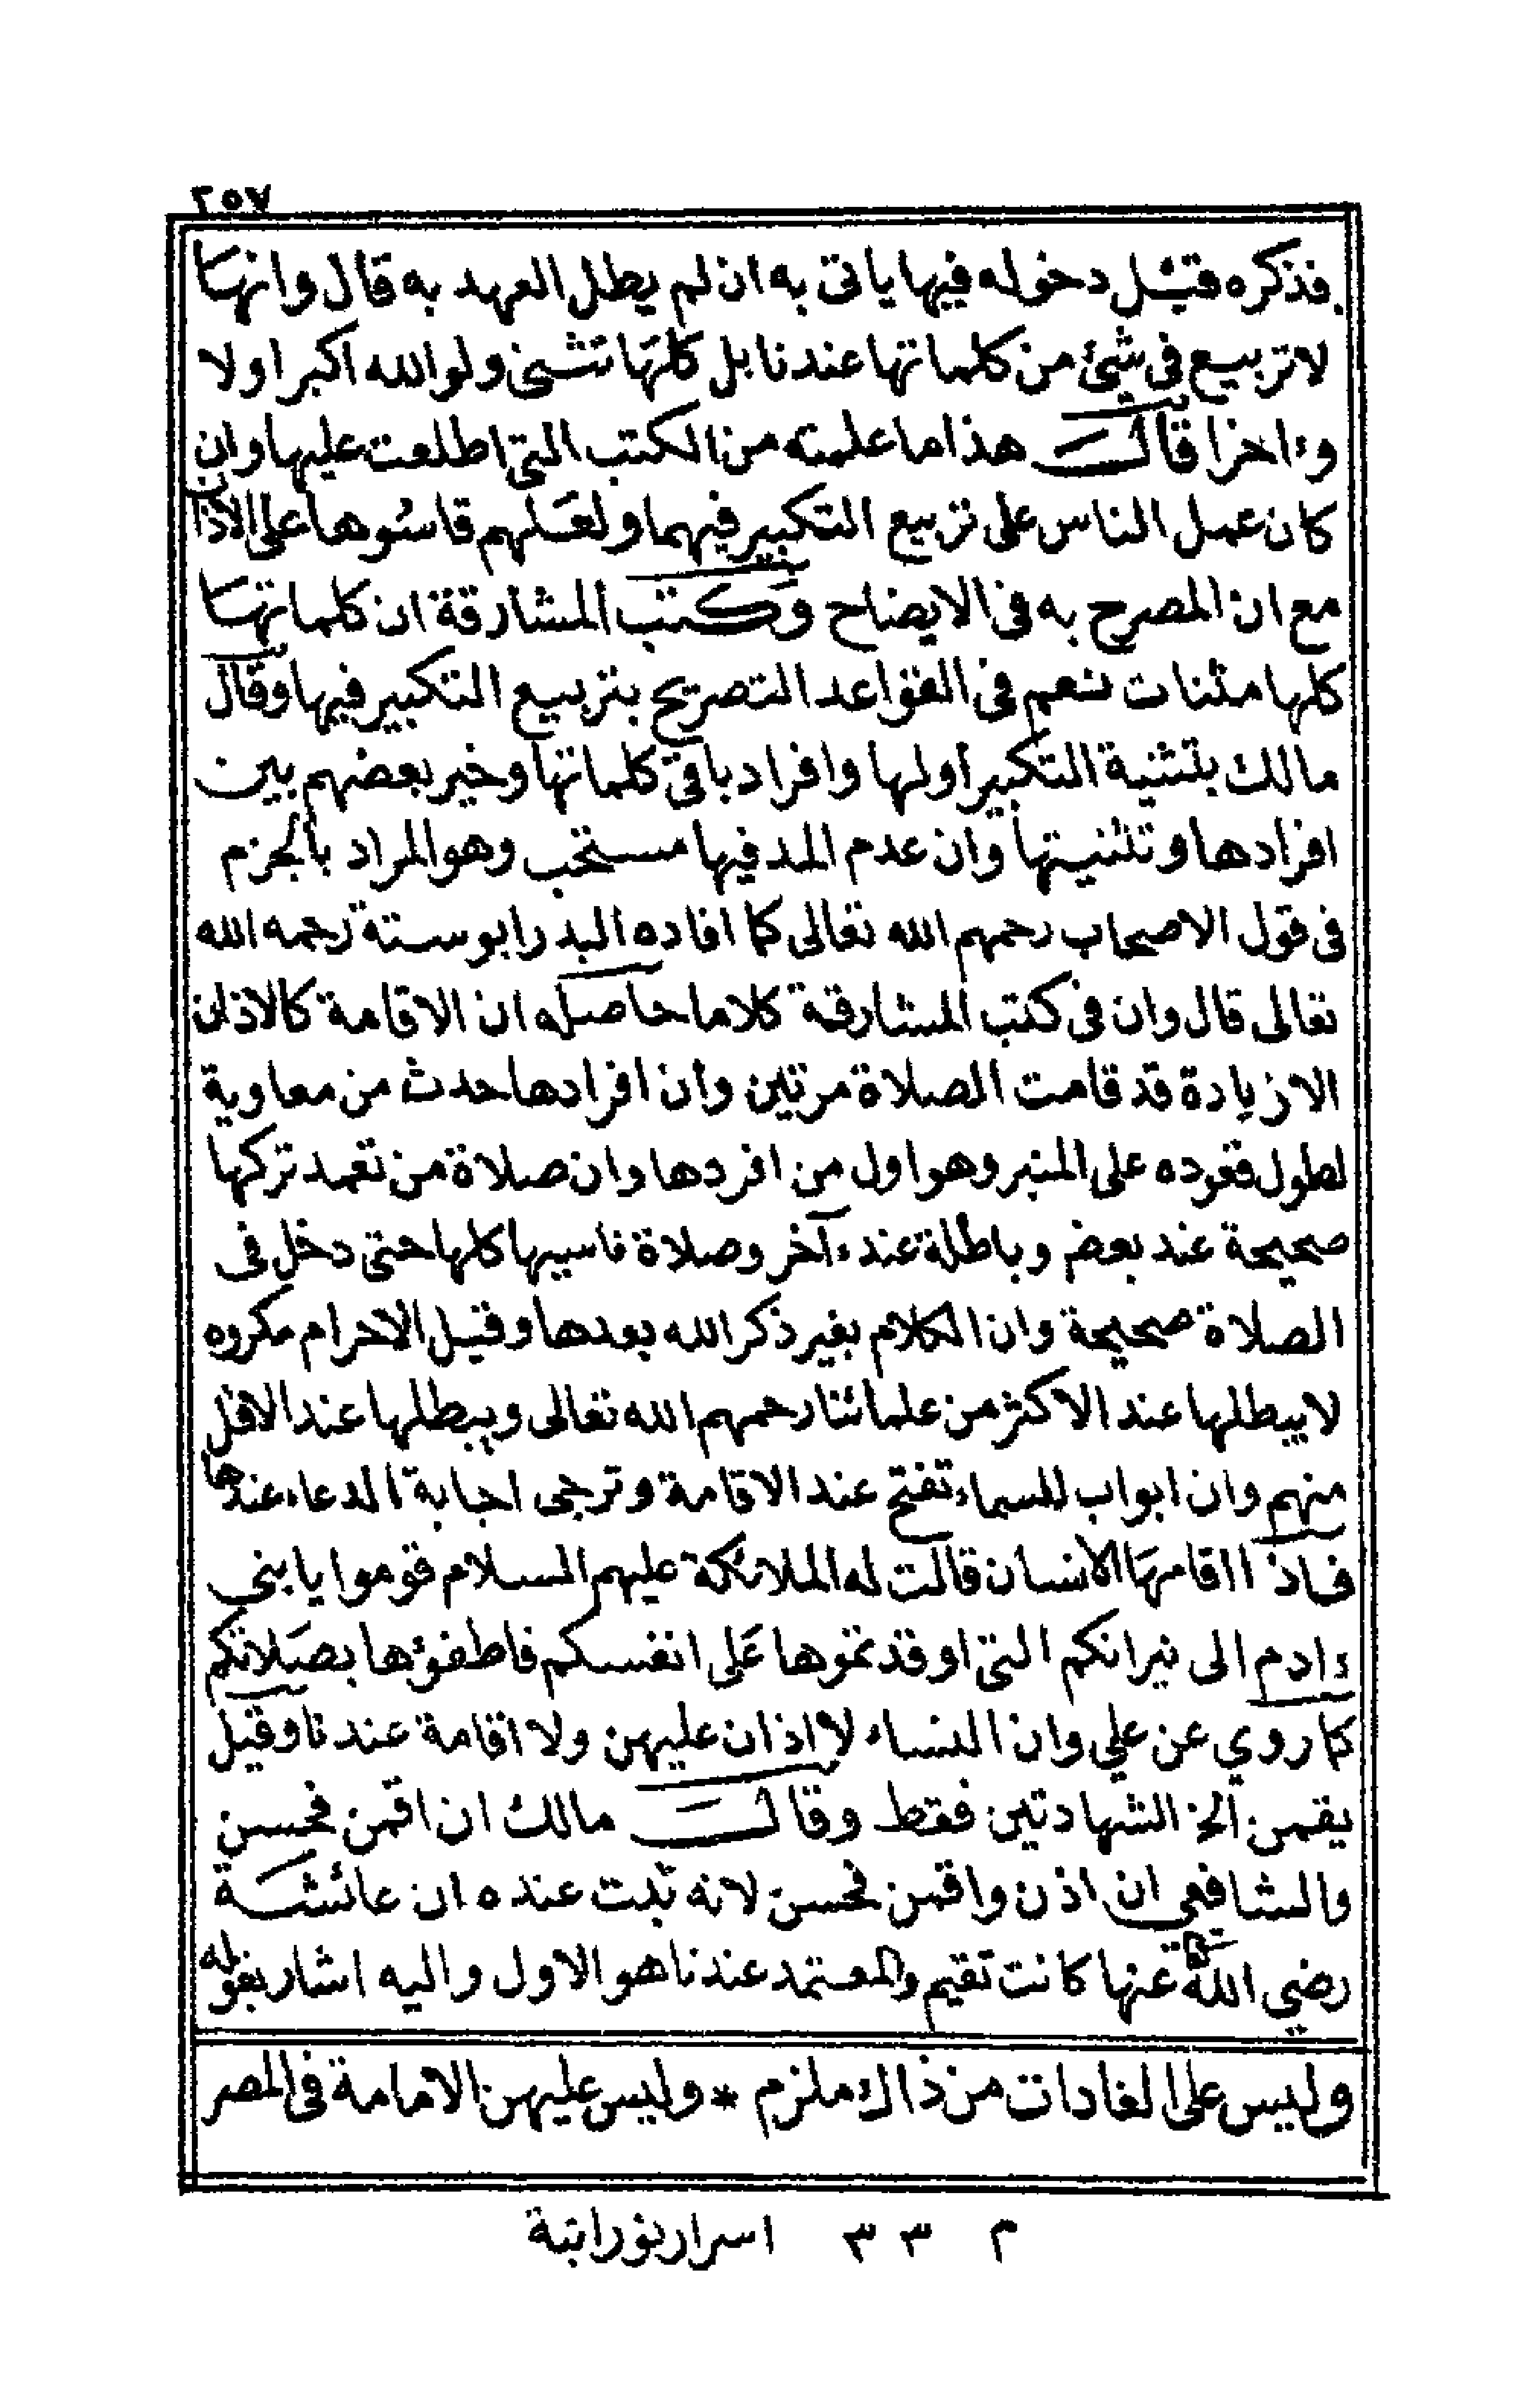 ٢٥٧
فذكره قبل دخوله فيها ياتى به ان لم يطل العهد به قال وانها
لا تربيع فى شئ من كلماتها عندنا بل كلها تثنى ولو الله اكبر اولا
وءاخرا قال هذا ما علمته من الكتب التى اطلعت عليها وان
كان عمل الناس على تربيع التكبير فيهما ولعلهم قاسوها على الاذان
مع ان المصرح به فى الايضاح وكتب المشارقة ان كلماتها
كلها مثنات نعم فى القواعد التصريح بتربيع التكبير فيها وقال
مالك بتثنية التكبير اولها وافراد باقى كلماتها وخير بعضهم بين
افرادها وتثنيتها وان عدم المد فيها مستحب وهو المراد بالجزم
فى قول الاصحاب رحمهم الله تعالى كما افاده البدر ابو ستة رحمه الله
تعالى قال وان فى كتب المشارقة كلاما حاصله ان الاقامة كالاذان
الا زيادة قد قامت الصلاة مرتين وان افرادها حدث من معاوية
لطول قعوده على المنبر وهو اول من افردها وان صلاة من تعمد تركها
صحيحة عند بعض وباطلة عند ءآخر وصلاة ناسيها كلها حتى دخل فى
الصلاة صحيحة وان الكلام بغير ذكر الله بعدها وقبل الاحرام مكروه
لا يبطلها عند الاكثر من علمائنا رحمهم الله تعالى ويبطلها عند الاقل
منهم وان ابواب السماء تفتح عند الاقامة وترجى اجابة الدعاء عندها
فاذا اقامها الانسان قالت له الملائكة عليهم السلام قوموا يا بنى
ءادم الى نيرانكم التى اوقدتموها على انفسكم فاطفؤها بصلاتكم
كما روي عن علي وان النساء لا اذان عليهن ولا اقامة عندنا وقيل
يقمن الخ الشهادتين فقط وقال مالك ان اقمن فحسن
والشافعي ان اذن واقمن فحسن لانه ثبت عنده ان عائشة
رضي الله عنها كانت تقيم والمعتمد عندنا هو الاول واليه اشار بقوله
وليس على الغادات من ذاك ملزم * وليس عليهن الامامة فى المصر
م ٣٣ اسرار نورانية